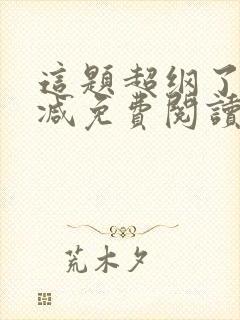 這題超綱了
減免費閱讀
荒木夕